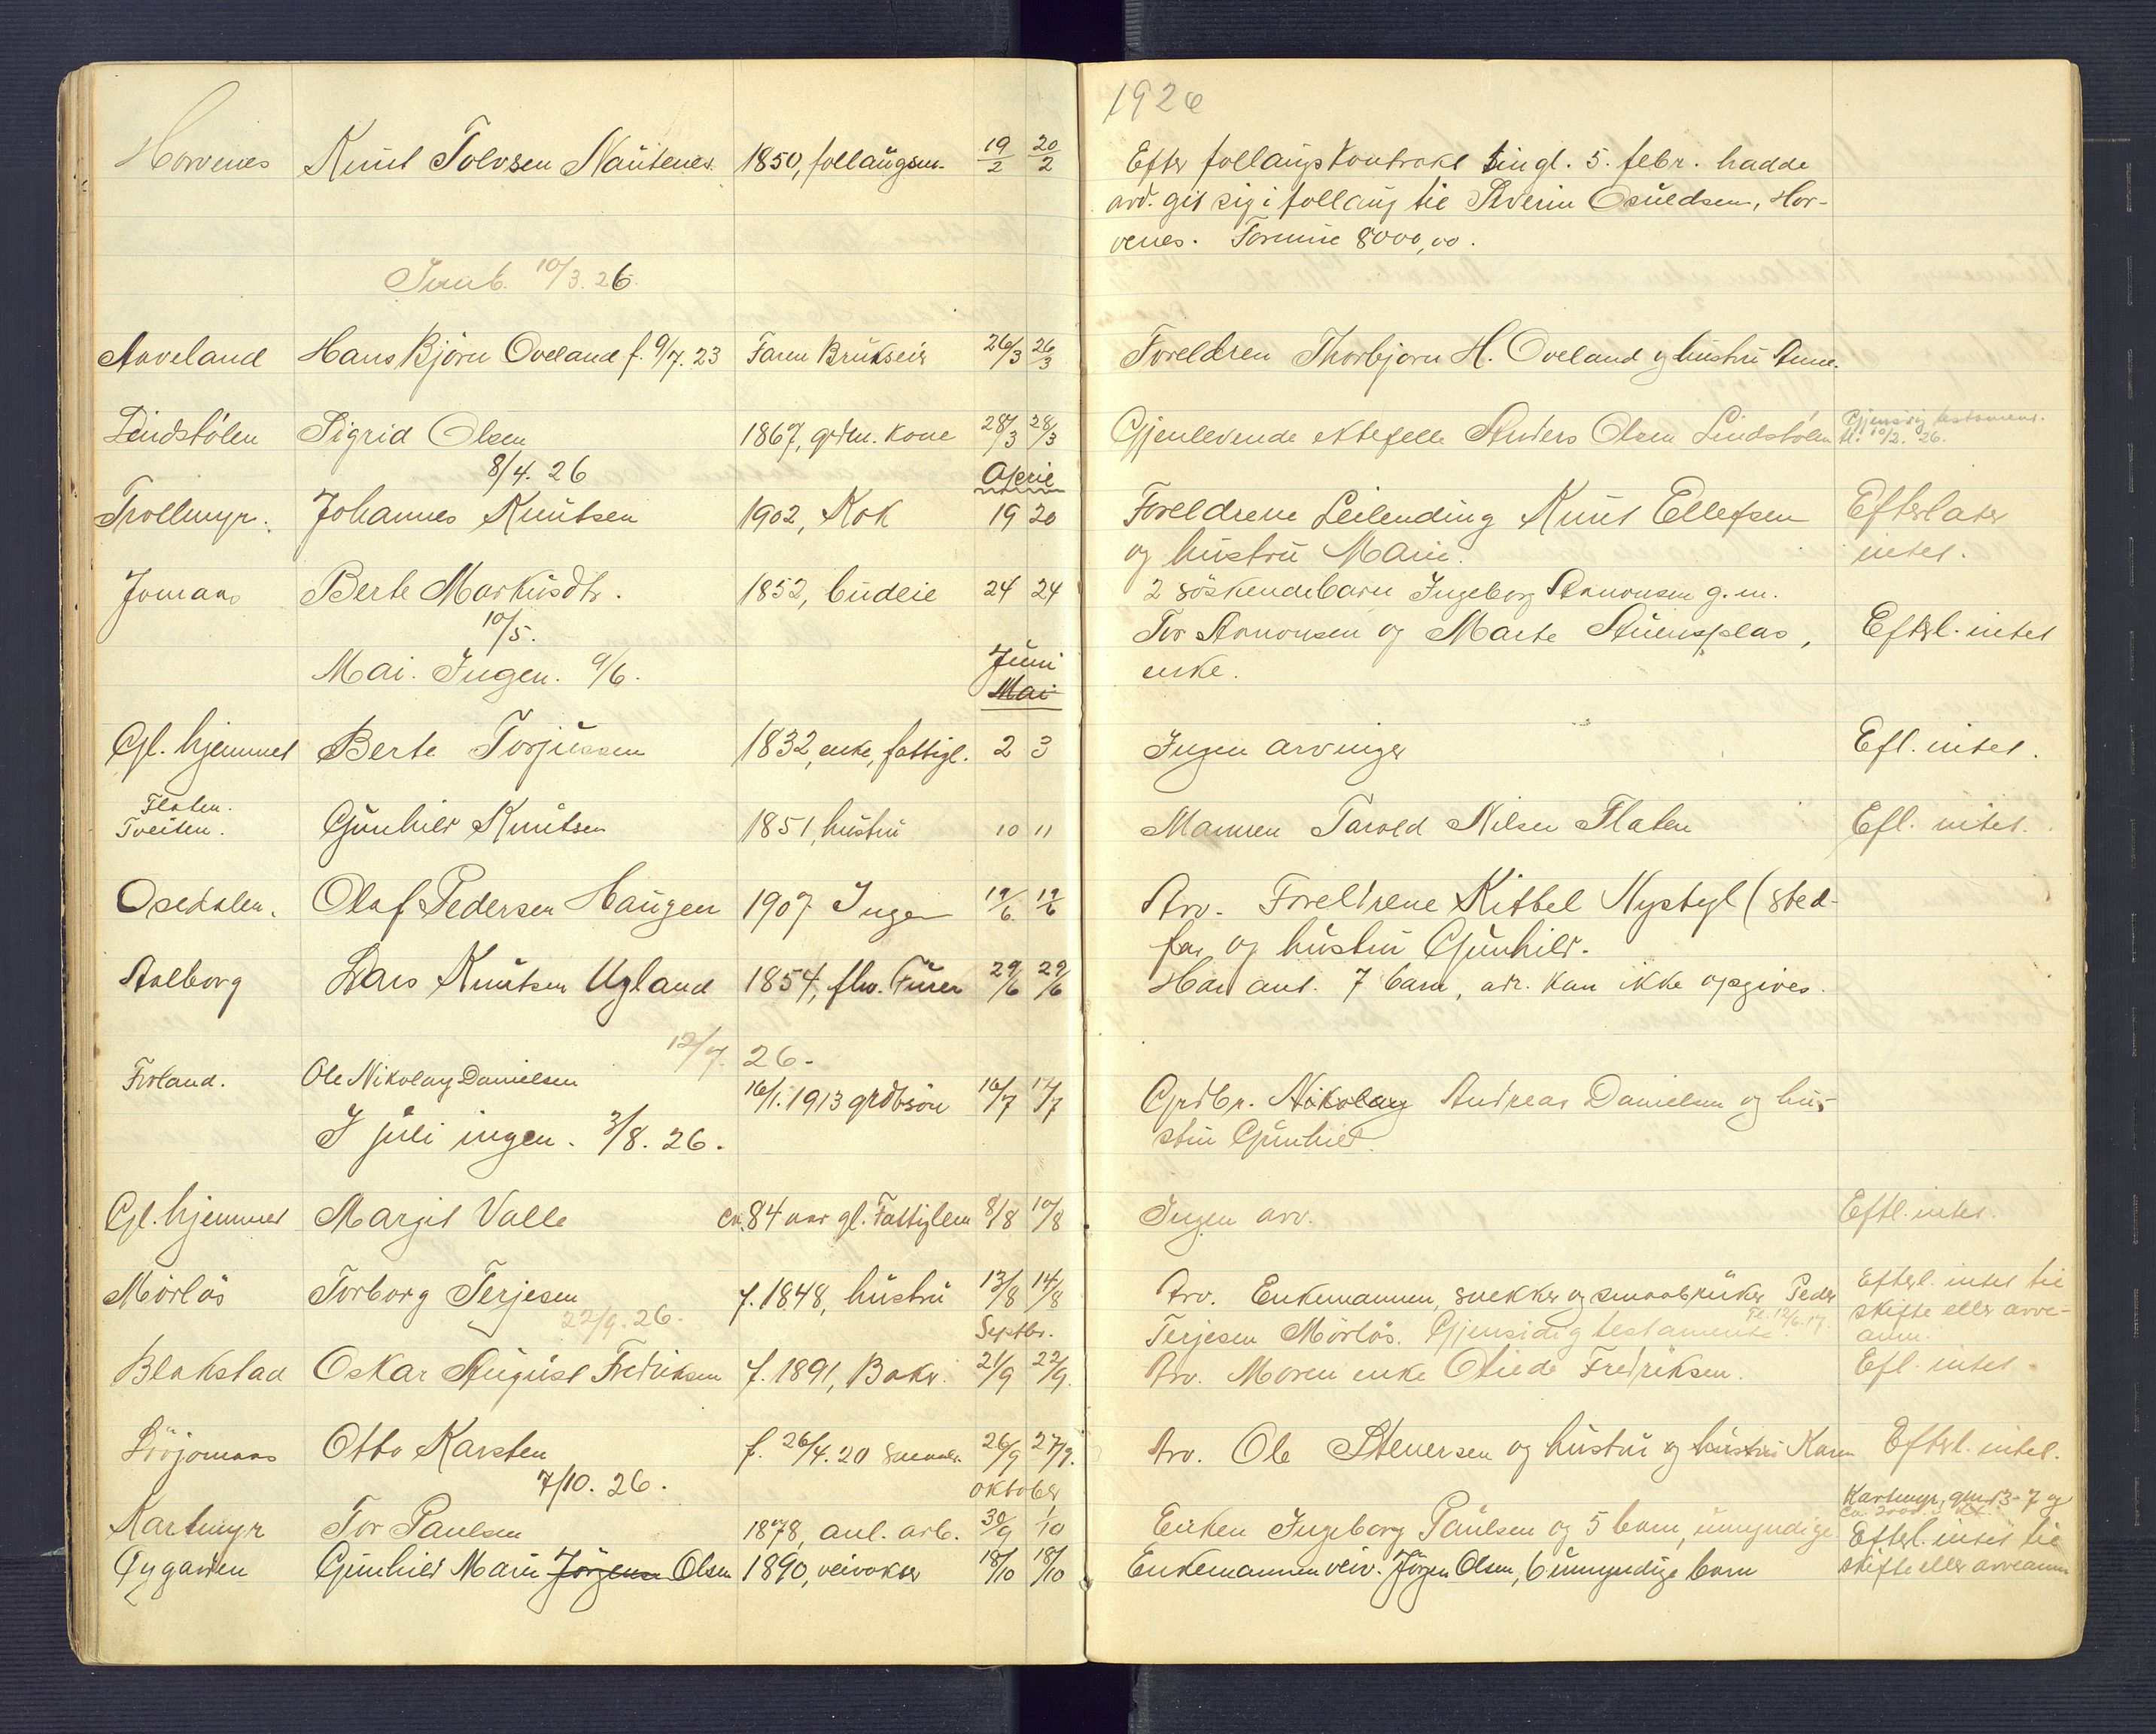 1926
Horvenes Knut Tolvsen Nautenes. 1850, follaugsm. 19/2 20/2 Efter follaugskontrakt tingl. 5. febr. hadde
avd. git sig i follaug til Severin Osuldsen, Hor-
venes. Formue 8000,00.
Innb. 10/3. 26.
Aaveland Hans Björn Oveland f. 9/7. 23 Faren Brukseier 26/3 26/3 Foreldren Thorbjørn H. Oveland og hustru Anne.
Lindstölen Sigrid Olsen 1867, grdm. kone 28/3 28/3 Gjenlevende ektefelle Anders Olsen Lindstölen Gjensidig testament.
tl. 10/2. 26.
8/4. 26 April
Trollmyr. Johannes Knutsen 1902, Kok 19 20 Foreldrene Leilending Knut Ellefsen Efterlater
og hustru Marie. intet.
Jomaas Berte Markusdtr. 1852, budeie 24 24 2 söskendebarn Ingeborg Aanonsen g. m.
10/5. Tor Aanonsen og Marte Stuensplas, Efterl. intet
Mai. Ingen. 9/6. Juni enke.
Mai
Gl. hjemmet Berte Torjussen 1832, enke, fattigl. 2 3 Ingen arvinger Efl. intet.
Flaten.
Tveiten. Gunhild Knutsen 1851, hustru 10 11 Mannen Tarald Nilsen Flaten Efl. intet.
Osedalen. Olaf Pedersen Haugen 1907 Ingen 12/6 12/6 Arv. Foreldrene Kittel Nystøyl (sted-
far og hustru Gunhild.
Aalborg Lars Knutsen Ugland 1854, flv. Furer 29/6 29/6 Har ant. 7 barn, adr. kan ikke opgives.
12/7. 26.
Froland. Ole Nikolay Danielsen 16/1. 1913 grdbsön 16/7 17/7 Grdbr. Nikolay Andreas Danielsen og hu-
I juli ingen. 3/8. 26. stru Gunhild.
Gl. hjemmet Margit Valle ca. 84 aar gl. Fattiglem 8/8 10/8 Ingen arv. Eftl. intet.
Mörlös Torborg Terjesen f. 1848, hustru 13/8 14/8 Arv. Enkemannen, snekker og smaabruker Peder Efterl. intet til
22/9. 26. Terjesen Mörlös. Gjensidig testamente Tl. 12/6. 17. skifte eller arve-
Septbr. anm.
Blakstad Oskar August Fredriksen f. 1891, Baker. 21/9 22/9. Arv. Moren enke Otilde Fredriksen. Efl. intet.
Otto Karsten f. 26/4. 20 26/9 27/9. Arv. Ole Stenersen og hustru og hustru Karen Efterl. intet.
7/10. 26. oktober
Kartmyr Tor Paulsen 1878, anl. arb. 30/9 1/10 Enken Ingeborg Paulsen og 5 barn, umyndige Kartmyr, gnr 13-7 og
ca. 2000
Tygarden Gunhild Marie Jörgensen Olsen 1890, veivokter 18/10 18/10 Enkemannen veiv. Jörgen Olsen, 6 umyndige barn Efterl. intet til
skifte eller arveanm